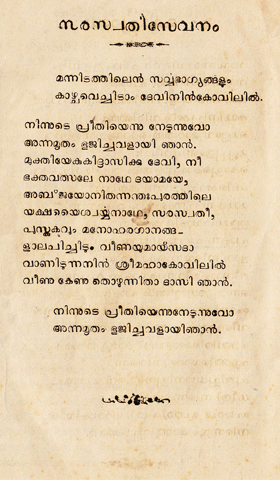 സരസ്വതീസേവനം
മന്നിടത്തിലെൻ സർവ്വഭാഗ്യങ്ങളും
കാഴ്ചവെച്ചിടാം ദേവിനിൻകോവിലിൽ.
നിന്നുടെ പ്രീതിയെന്നു നേടുന്നുവോ
അന്നമൃതം ഭുജിച്ചവളായി ഞാൻ.
മുക്തിയേകുകിദ്ദാസിക്കു ദേവി, നീ
ഭക്തവത്സലേ നാഥേ ദയാമയേ,
അബ്ജയോനിതന്നന്തഃപുരത്തിലെ
യക്ഷയൈശ്വര്യനാഥേ, സരസ്വതീ,
പുസ്തകവും മനോഹരഗാനങ്ങ-
ളാലപിച്ചിടും വീണയുമായ്സദാ
വാണിടുന്നനിൻ ശ്രീമഹാകോവിലിൽ
വീണു കേണു തൊഴുന്നിതാ ദാസി ഞാൻ.
നിന്നുടെ പ്രീതിയെന്നുനേടുന്നുവോ
അന്നമൃതം ഭുജിച്ചവളായിഞാൻ.